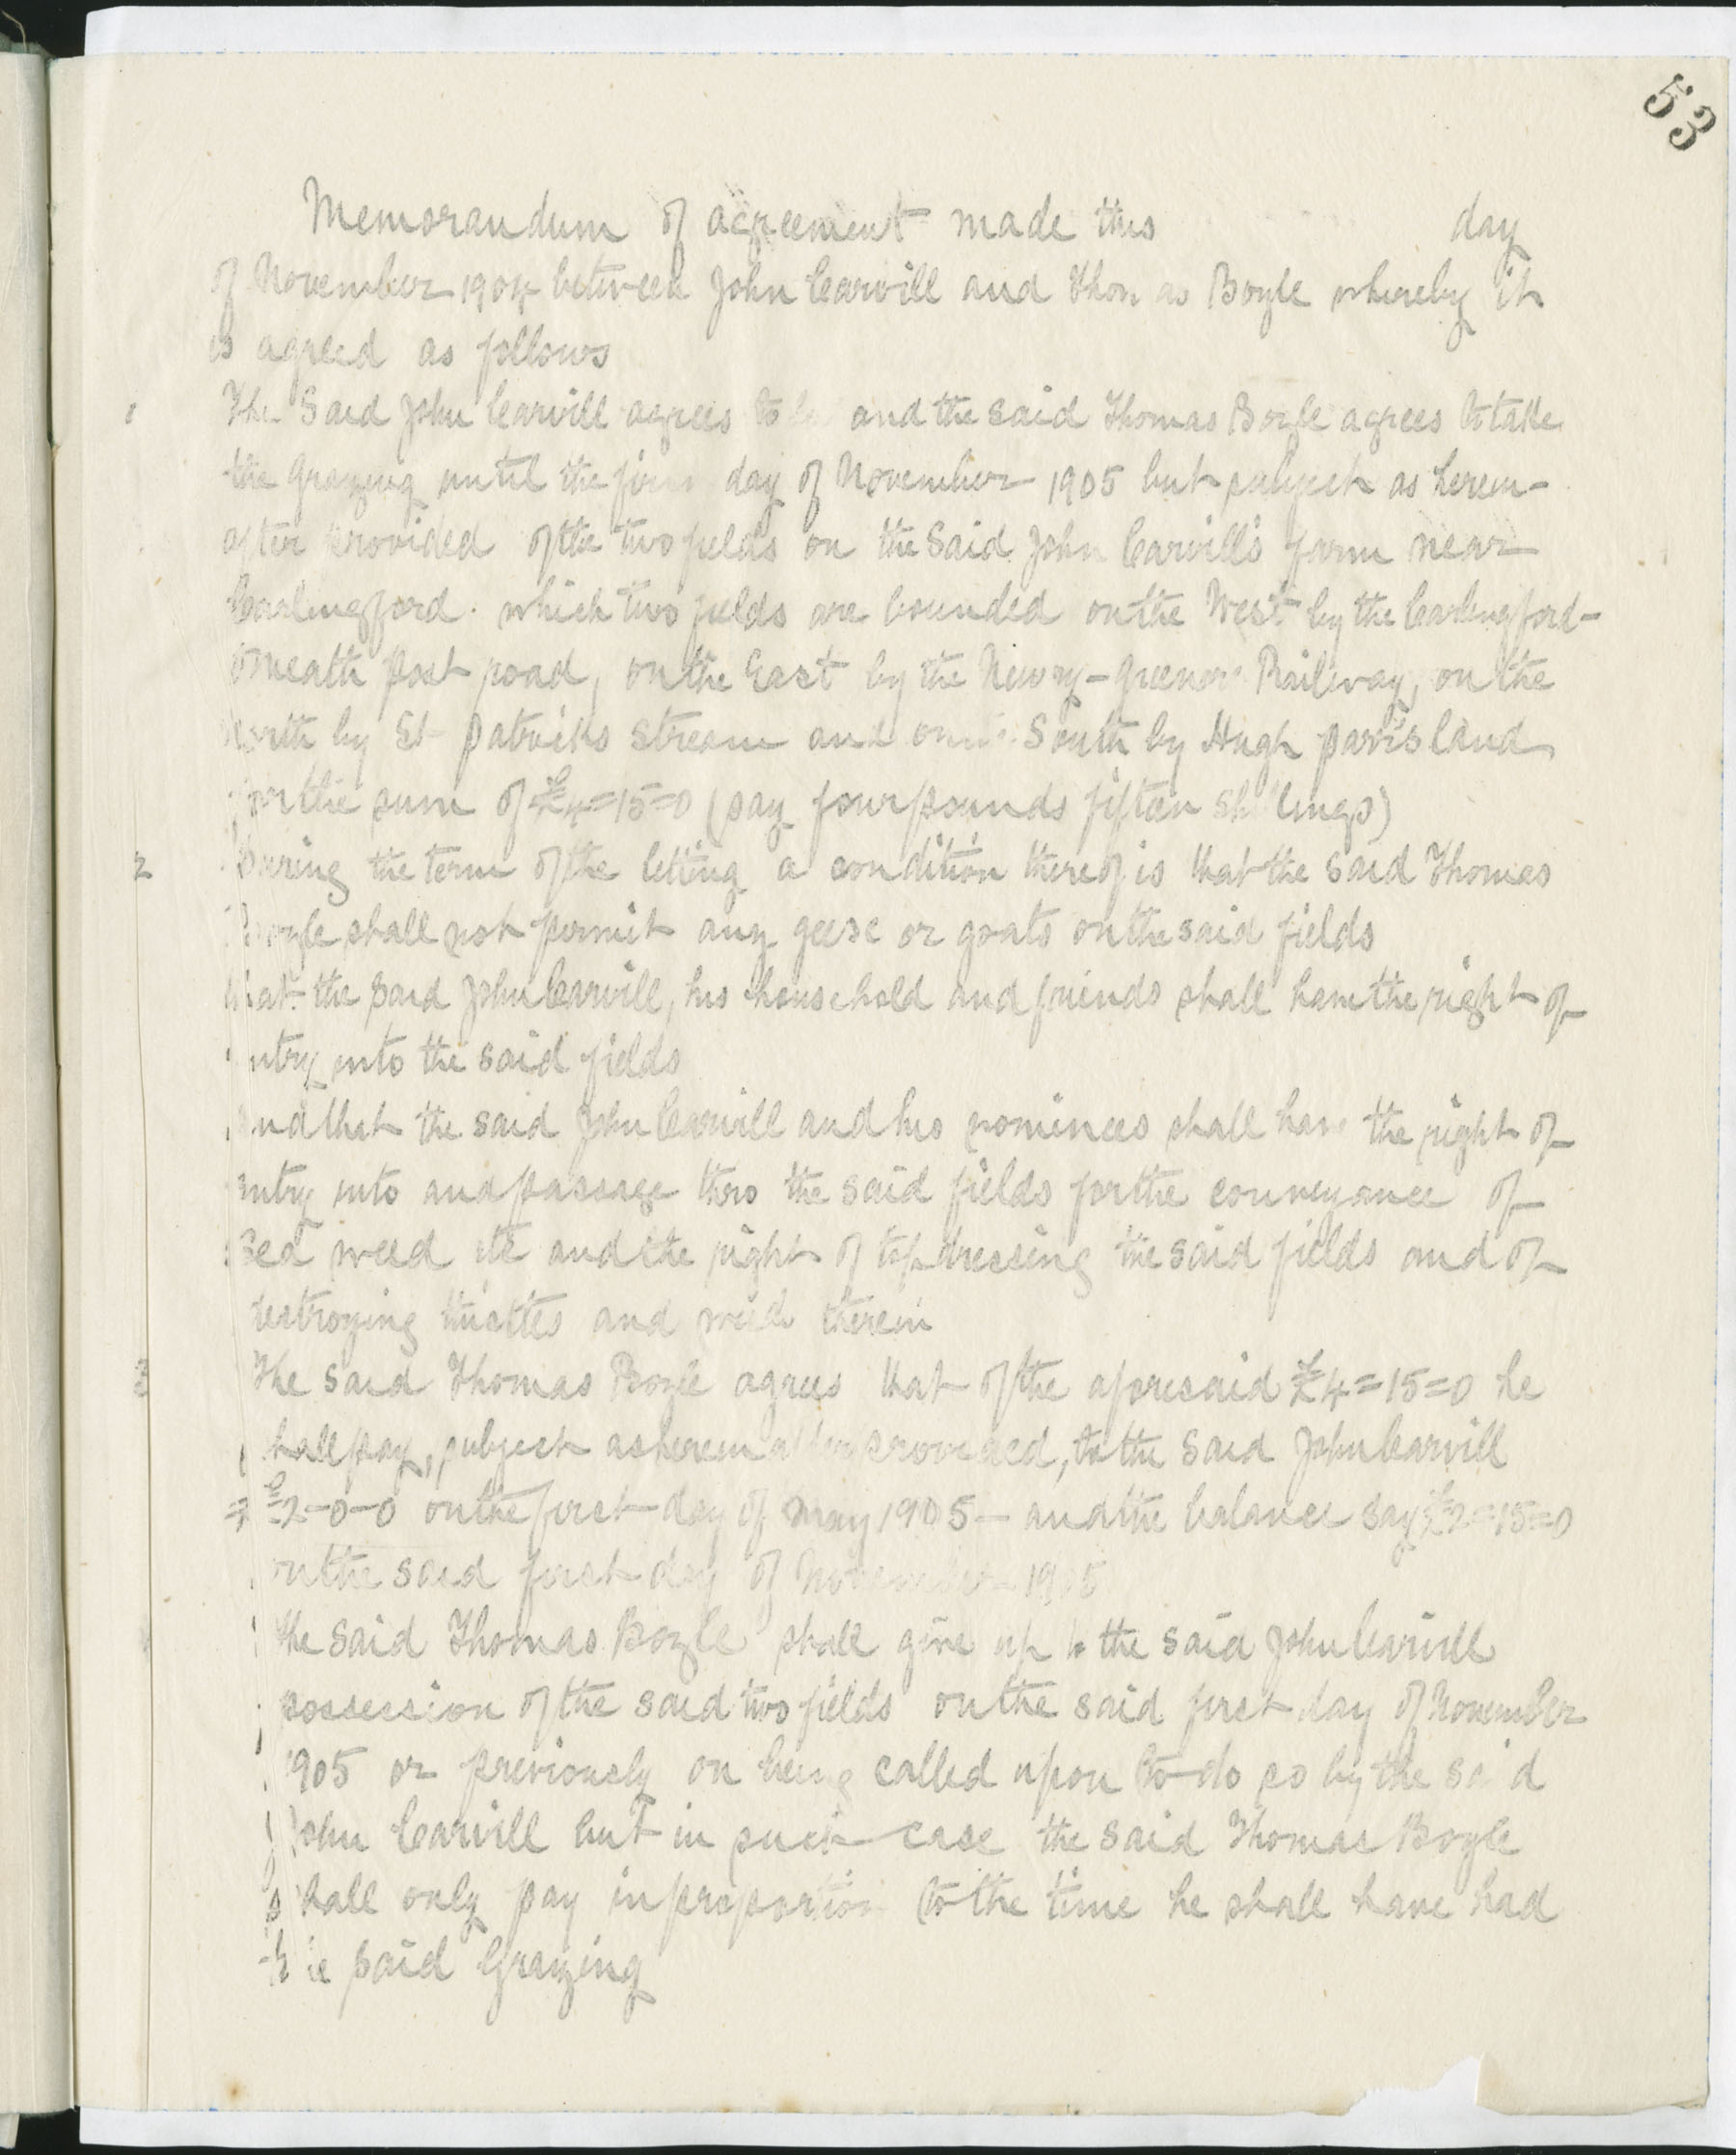 53
Memorandum of agreement made this day
of November 1904 between John Carvill and Thomas Boyle whereby it
is agreed as follows
1 The Said John Carvill agrees to and the said Thomas Boyle agrees to take
the Grazing until the first day of November 1905 but subject as herein-
after provided of the two fields on the Said John Carvill's farm near
Carlingford. which two fields are bounded on the West by the Carlingford-
Omeath post road, on the East by the Newry-Greenore Railway, on the
North by St Patricks Stream and on South by Hugh land
for the sum of £4=15=0 (say four pounds fifteen shillings)
2 During the term of the letting a condition thereof is that the said Thomas
Boyle shall not permit any geese or goats on the said fields
that the said John Carvill, his household and friends shall have the right of
entry into the said fields
and that the said John Carvill and his nominees shall have the right of
entry into and passage thro the said fields for the conveyance of
Sea weed etc and the right of top dressing the said fields and of
destroying thistles and weeds therein
3 The said Thomas Boyle agrees that of the aforesaid £4=15=0 he
shall pay, subject as herein after provided, to the said John Carvill
£2-0-0 on the first day of May 1905 - and the balance say £2=15=0
on the said first day of November 1905
The Said Thomas Boyle shall give up to the said John Carvill
possession of the said two fields on the said first day of November
1905 or previously on being called upon to do so by the said
John Carvill but in such case the said Thomas Boyle
shall only pay in proportion to the time he shall have had
the said Grazing